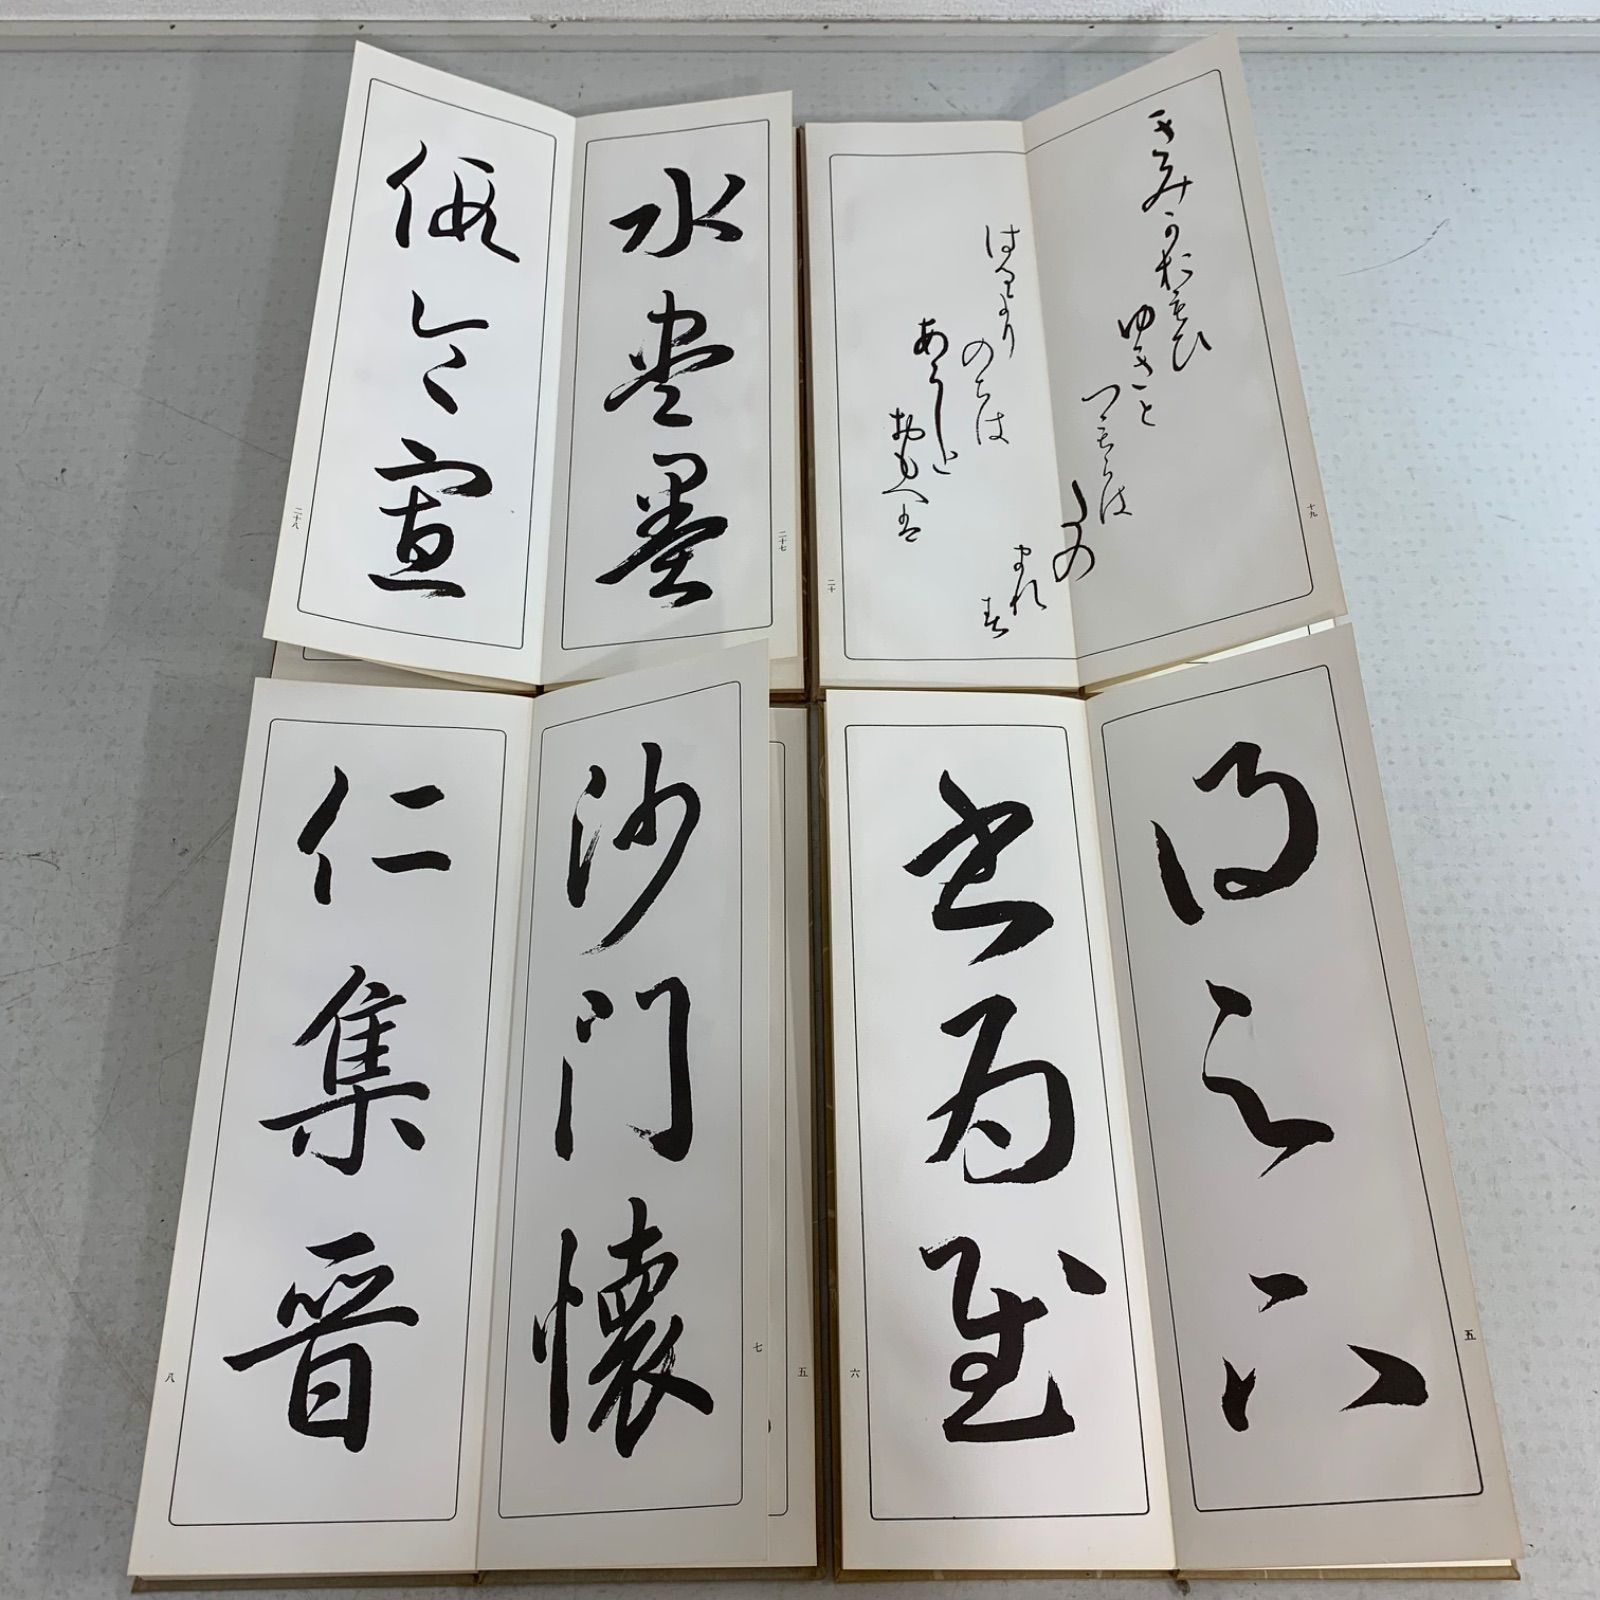 水盡墨
二十七
假令寡
二十八
きみをおもひ
ゆきこと
つもらは
十九
まれ
はるより
のちは
あらしと
おもへは
二十
沙門懷
七
仁集晉
八
五
得之不
五
書為
六